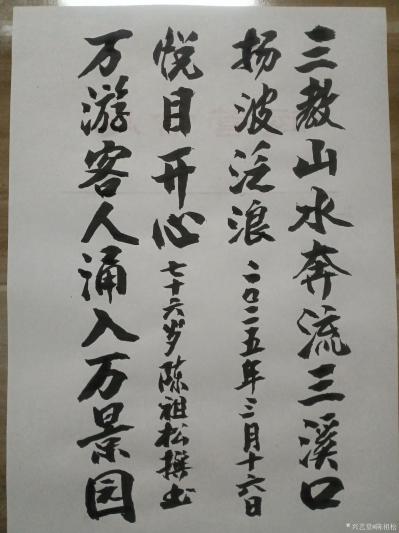 三教山水奔流三溪口
扬波泛浪
二〇二五年三月十六日
悦目开心
七十六岁陈祖松撰书
万游客人涌入万景园